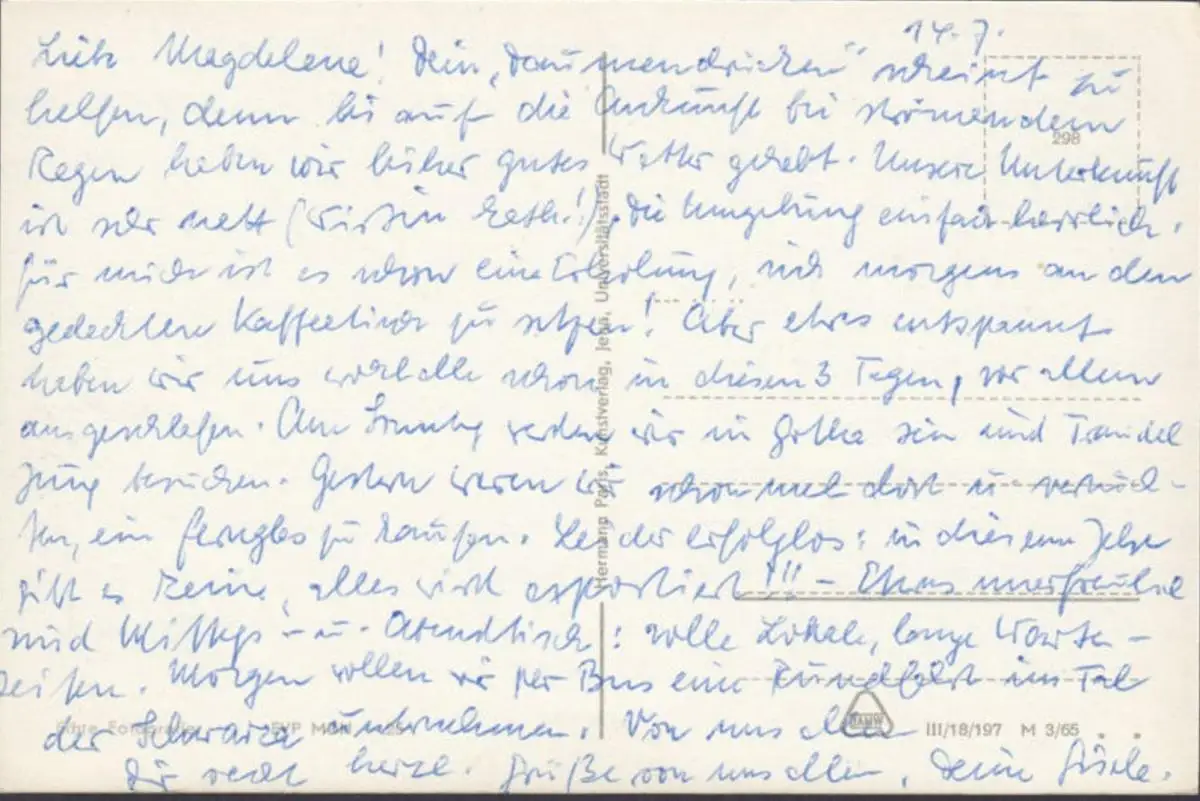 14.7.
Liebe Magdalena! Dein „Daumendrücken" scheint zu
helfen, denn bis auf die Ankunft bei strömendem
Regen haben wir bisher gutes Wetter gehabt. Unsere Unterkunft
ist sehr nett (Wirtin kath.!), die Umgebung einfach herrlich.
Für mich ist es schon eine Erholung, sich morgens an den
gedeckten Kaffeetisch zu setzen! Aber etwas entspannt
haben wir uns wohl alle schon in diesen 3 Tagen, vor allem
ausgeschlafen. Am Sonntag werden wir in Gotha sein und
Jung besuchen. Gestern waren wir schon mal dort u. versuch-
ten, ein Fernglas zu kaufen. Leider erfolglos: in diesem Jahr
gibt es keine, alles wird exportiert!!! – Etwas unerfreulich
sind Mittags- u. Abendtisch: volle Lokale, lange Warte-
zeiten. Morgen wollen wir per Bus eine Rundfahrt im Tal
der Schwarza unternehmen. Von uns allen
Dir recht herzl. Grüße von uns allen, Deine Gisela.
298
Hermann Paris, Kunstverlag, Jena, Universitätsstadt
Echte Fotografie EVP MDN
III/18/197 M 3/65